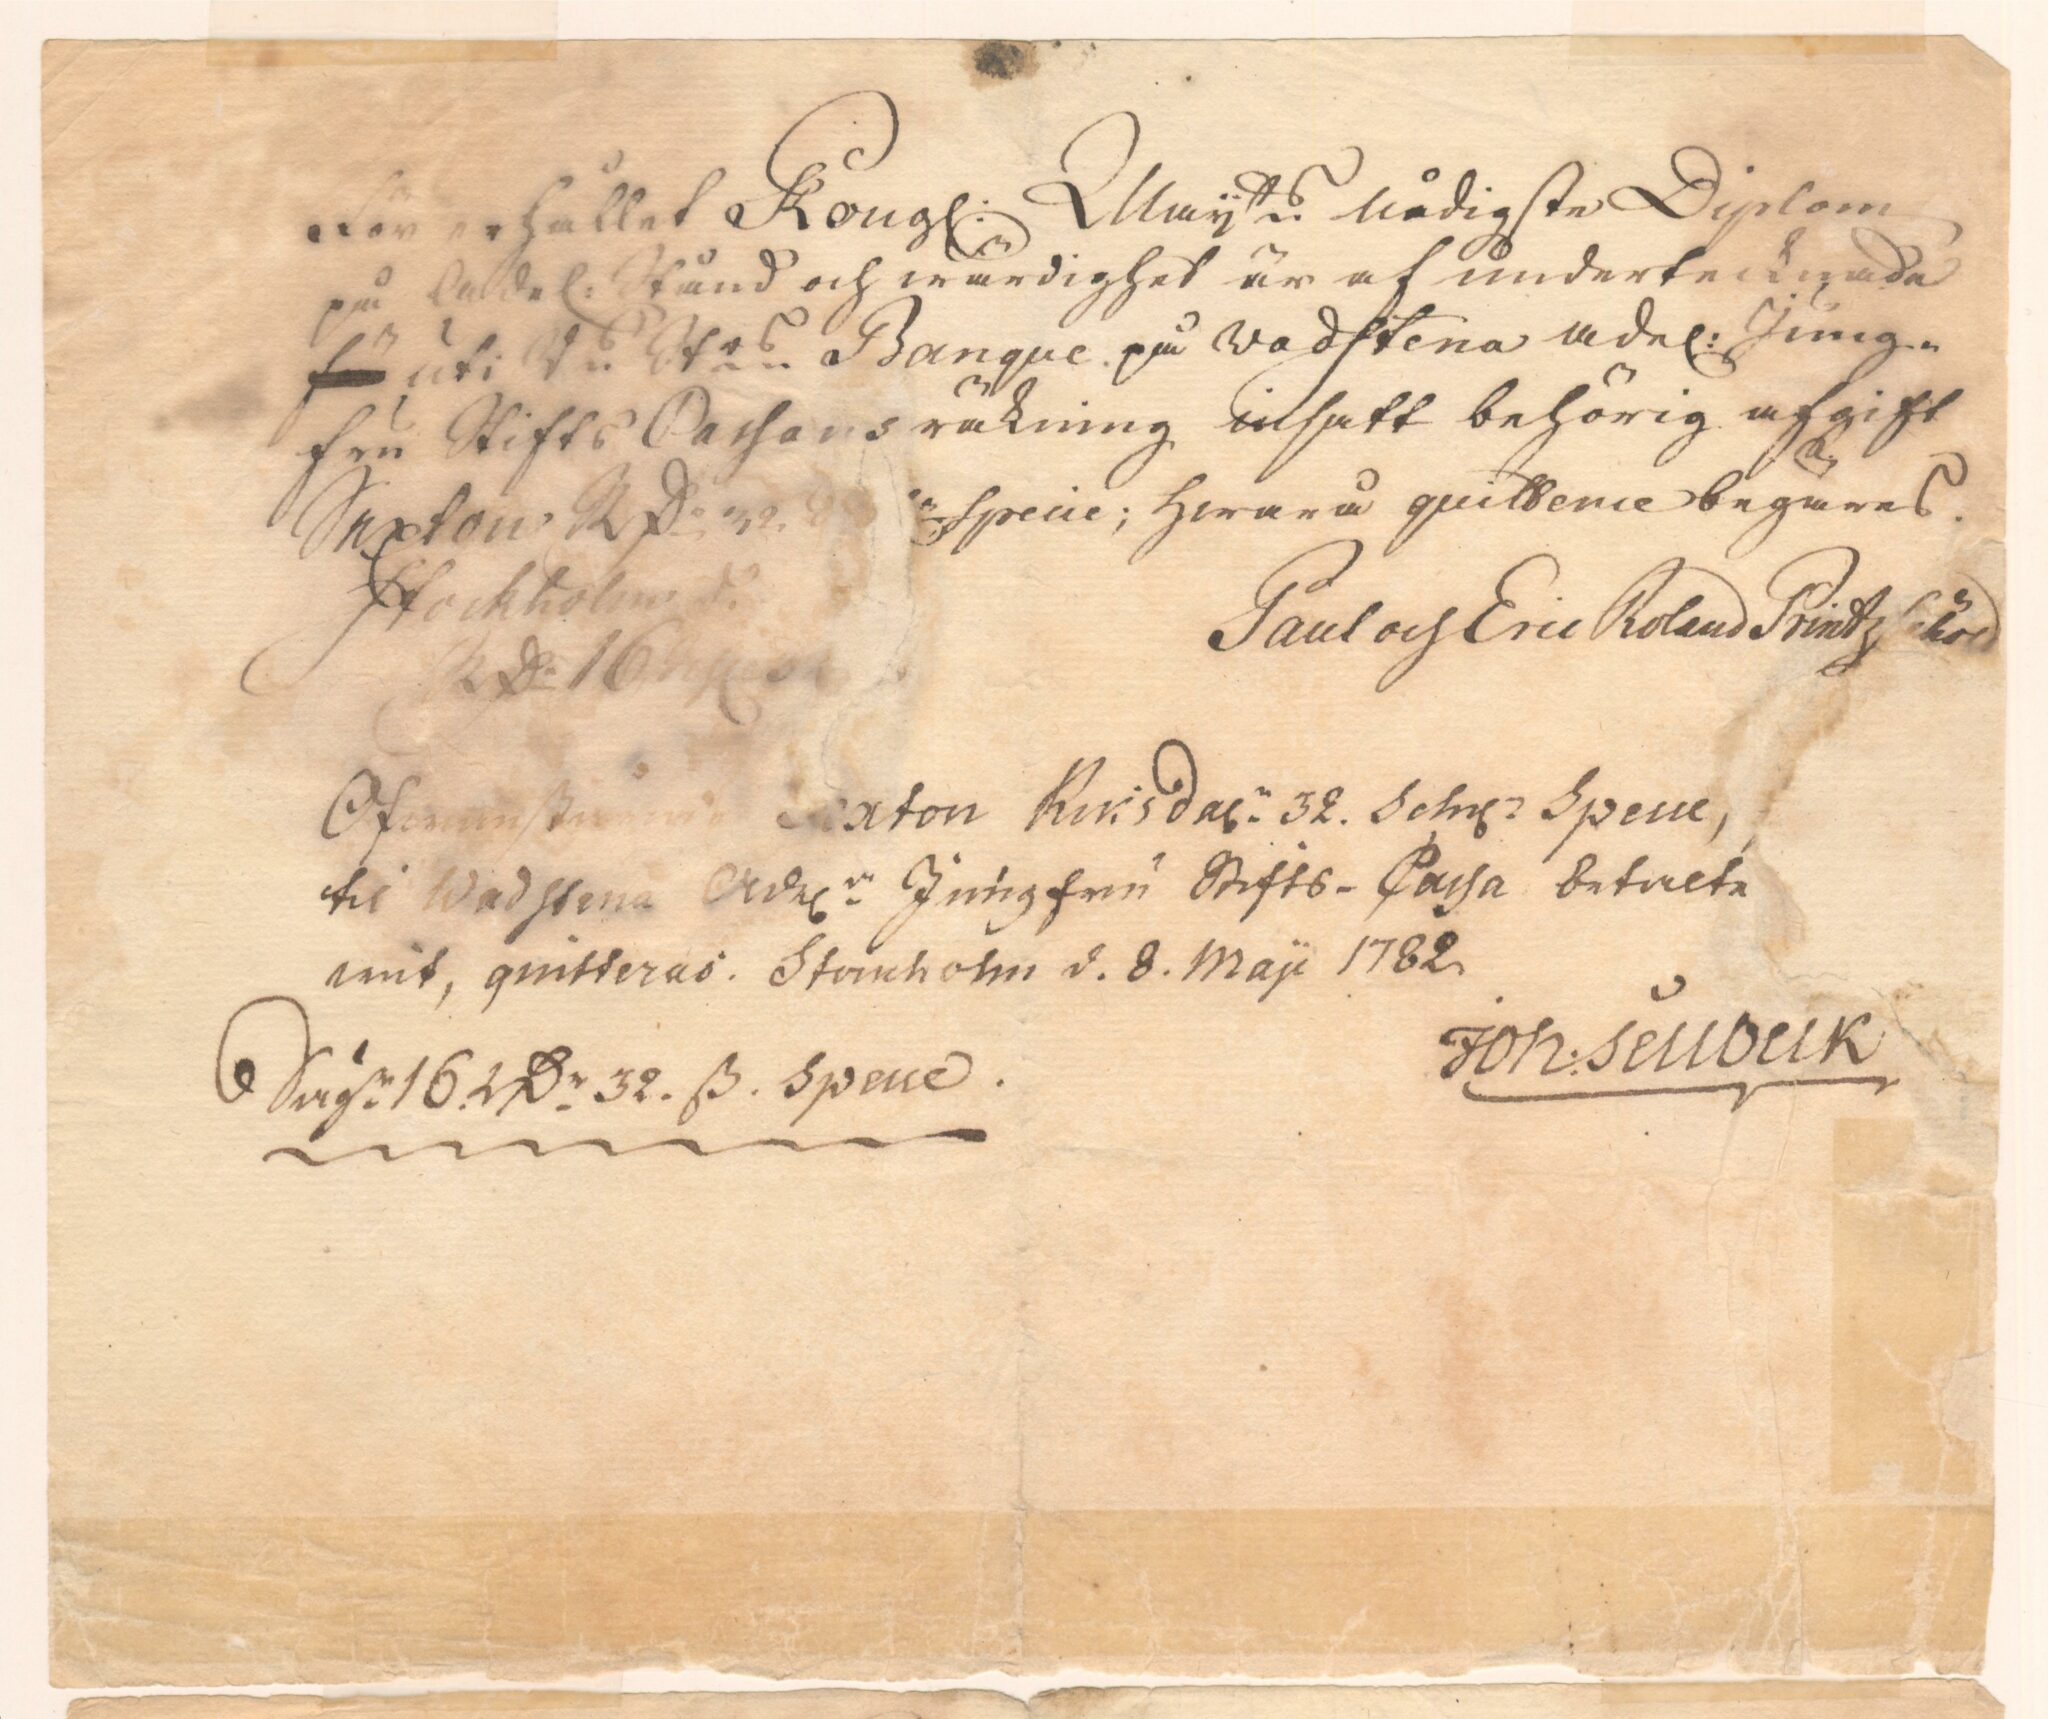 För erhållet Kongl: Maÿtts Nådigste Diplom
på Adel: Stånd och wärdighet är af undertecknade
uti Banque på Wadstena Adel: Jung-
fru Stifts Cassans räkning insatt behörig afgift
Sexton RDr 32. Specie; hwara quittence begäres.
Stockholm d.
Paul och Eric Roland Printzsköld
RDr 16
Ofwanstående Sexton Riksdalr 32. Schlr Specie,
til Wadstena Adelr Jungfru Stifts-Cassa betalte
wit, quitteras. Stockholm d. 8. Maji 1782
Joh: Seudelik
Säger 16. RDr 32. ß. Specie.